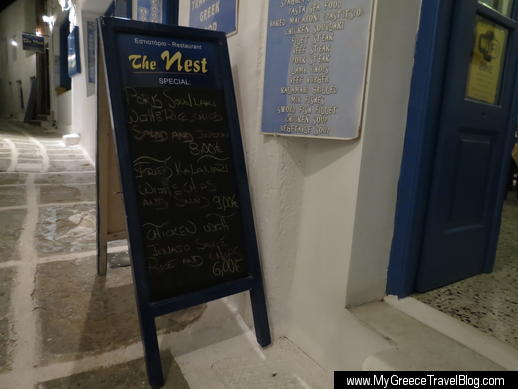 GREEK
FOOD
Εστιατόριο - Restaurant
The Nest
SPECIAL:
PORK SOUVLAKI
WITH RICE, CHIPS
SALAD AND
8,00€
FRIED KALAMARI
WITH CHIPS
AND SALAD 9,00€
CHICKEN WITH
SAUCE
RICE AND
6,00€
PASTA SEA FOOD
BAKED MACARONI PASTITSIO
CHICKEN SOUVLAKI
BEEF STEAK
PORK STEAK
LAMB CHOPS
BEEF BURGER
KALAMARI GRILLED
MIX FISHES
SWORD FISH FILLET
CHICKEN SOUP
VEGETABLE SOUP
www.MyGreeceTravelBlog.com